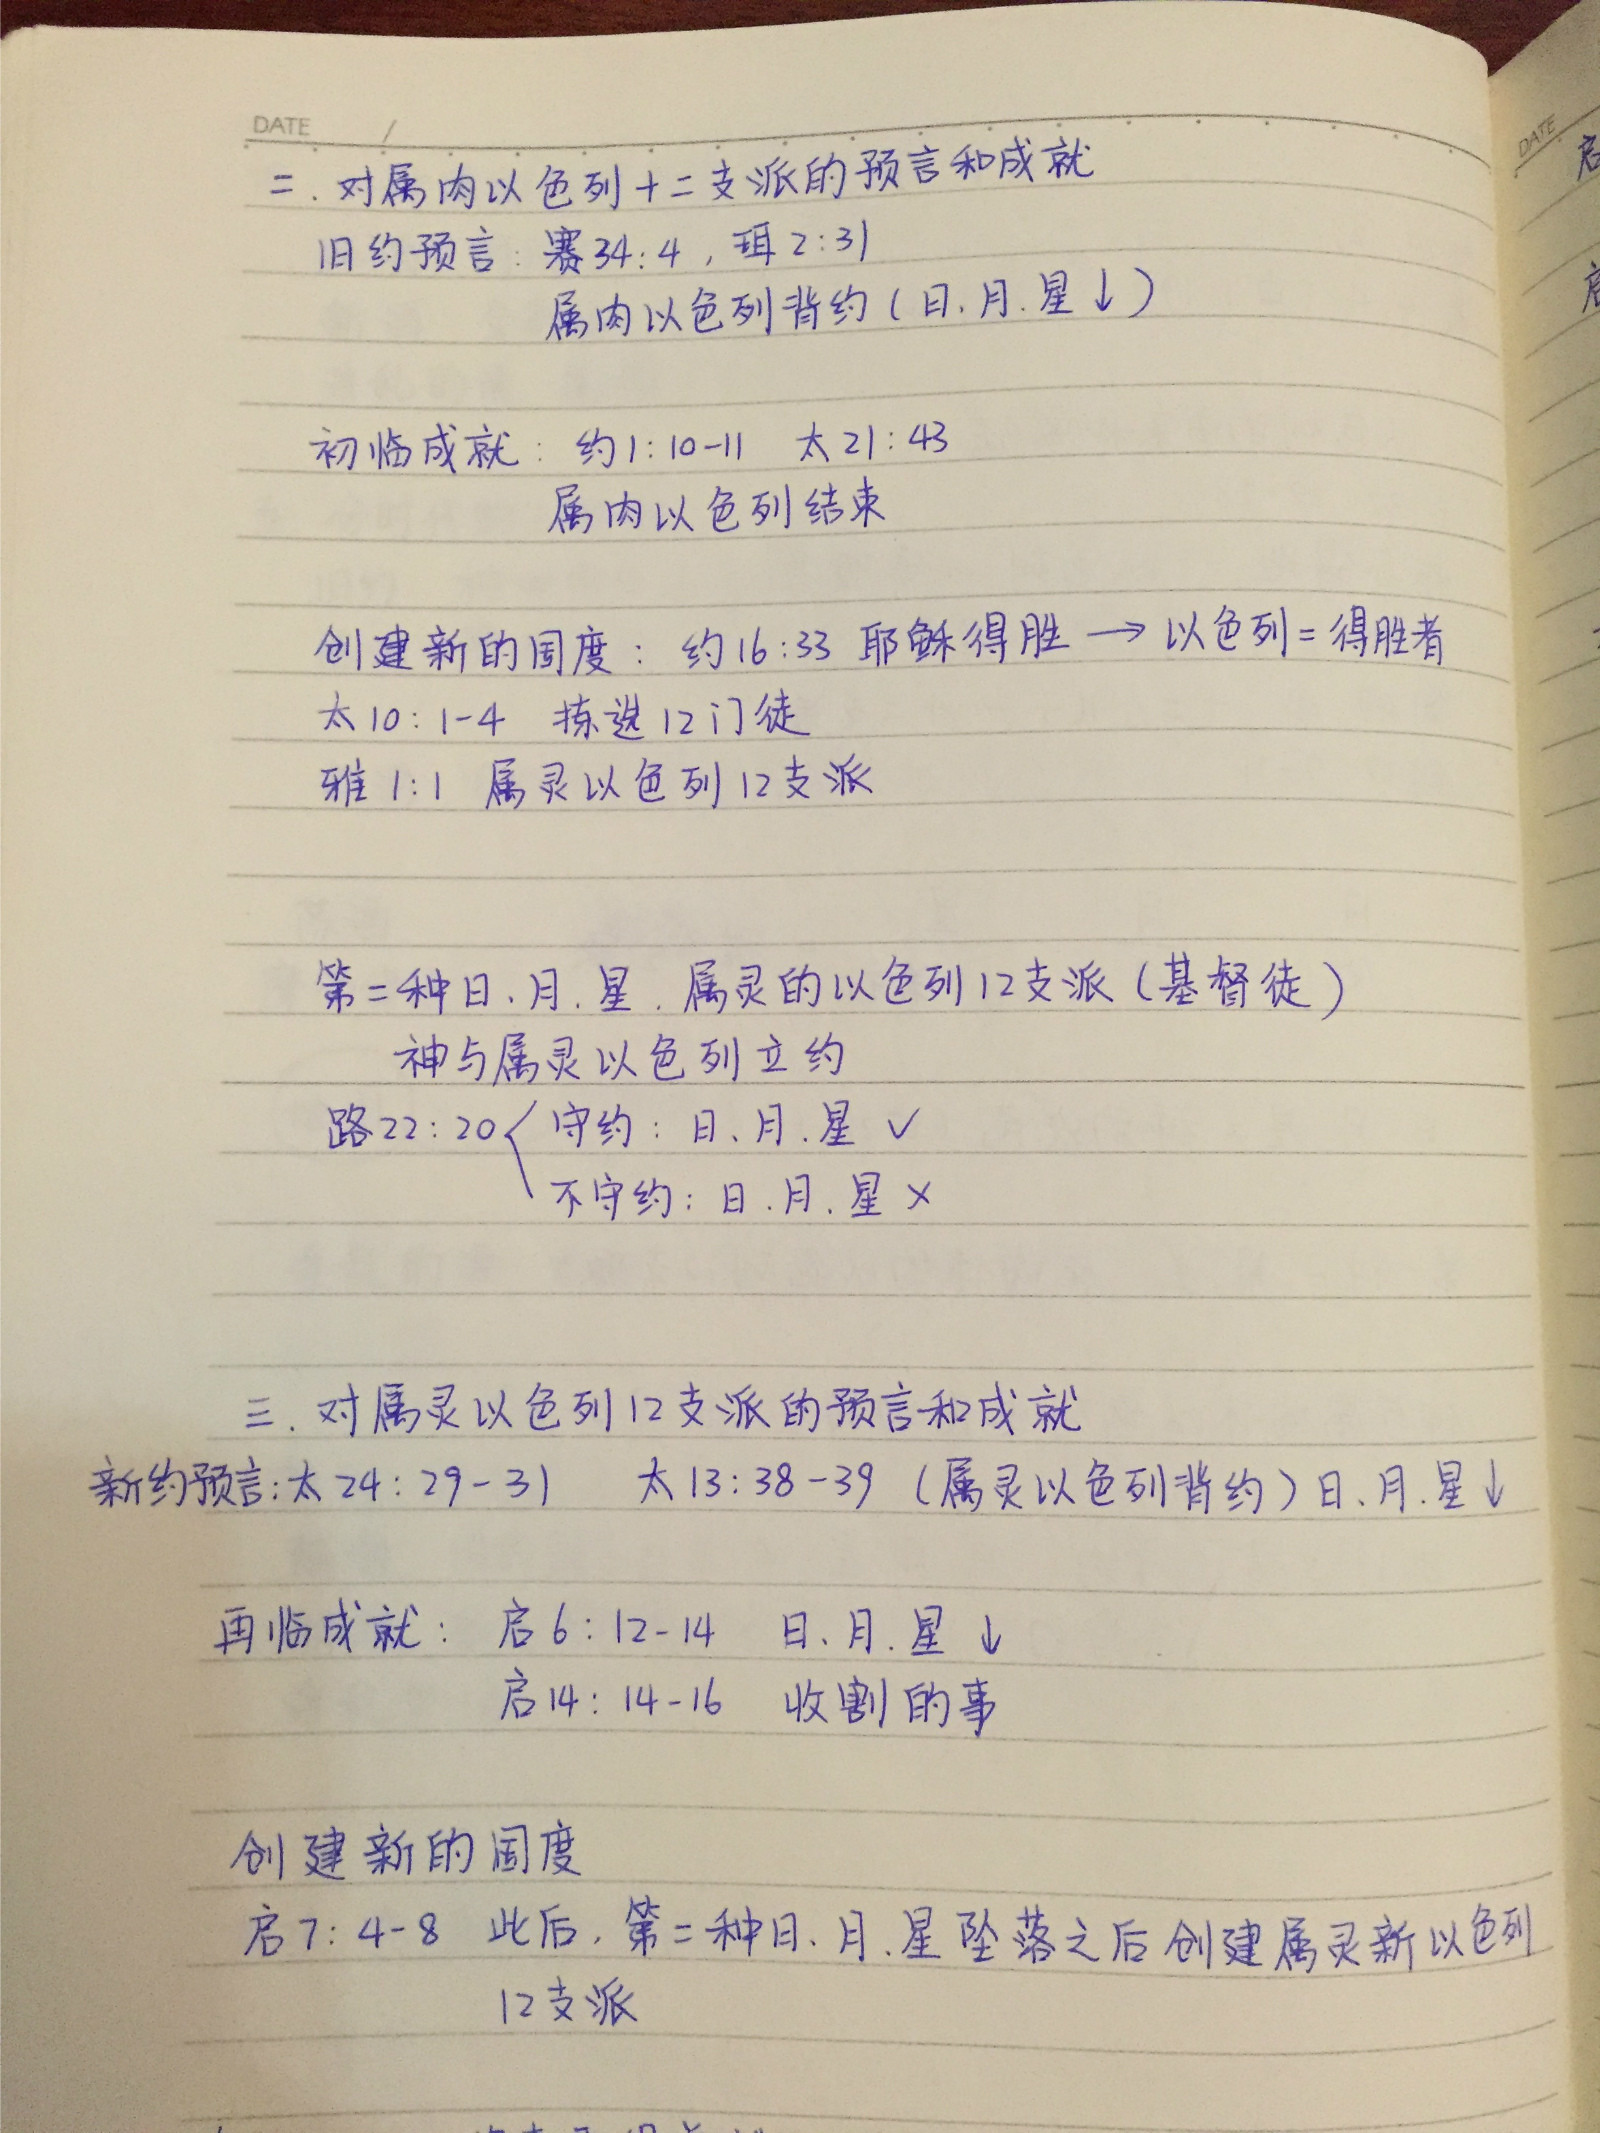 DATE /
二. 对属肉以色列十二支派的预言和成就
旧约预言: 赛34:4, 珥2:31
属肉以色列背约(日、月.星↓)
初临成就: 约1:10-11 太21:43
属肉以色列结束
创建新的国度: 约16:33 耶稣得胜→以色列=得胜者
太10:1-4 拣选12门徒
雅1:1 属灵以色列12支派
第二种日、月.星.属灵的以色列12支派(基督徒)
神与属灵以色列立约
路22:20 守约: 日、月.星✓
不守约: 日.月.星×
三. 对属灵以色列12支派的预言和成就
新约预言:太24:29-31 太13:38-39 (属灵以色列背约)日、月.星↓
再临成就: 启6:12-14 日、月.星↓
启14:14-16 收割的事
创建新的国度
启7:4-8 此后, 第二种日、月.星坠落之后创建属灵新以色列
12支派
DATE
启
启